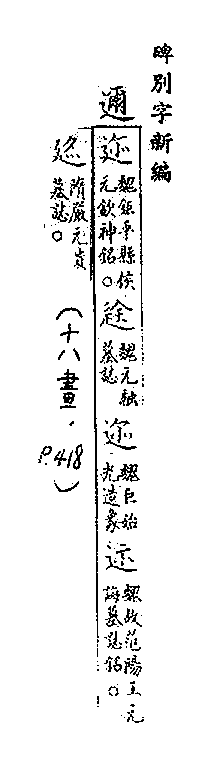 碑別字新編
邇
迩 魏鉅平縣侯
元欽神銘。
途 魏元融
墓誌
迩 魏巨始
光造象
迩 魏故范陽王元
誨墓誌銘。
迩 隋嚴元貴
墓誌。
(十八畫,
P.418)